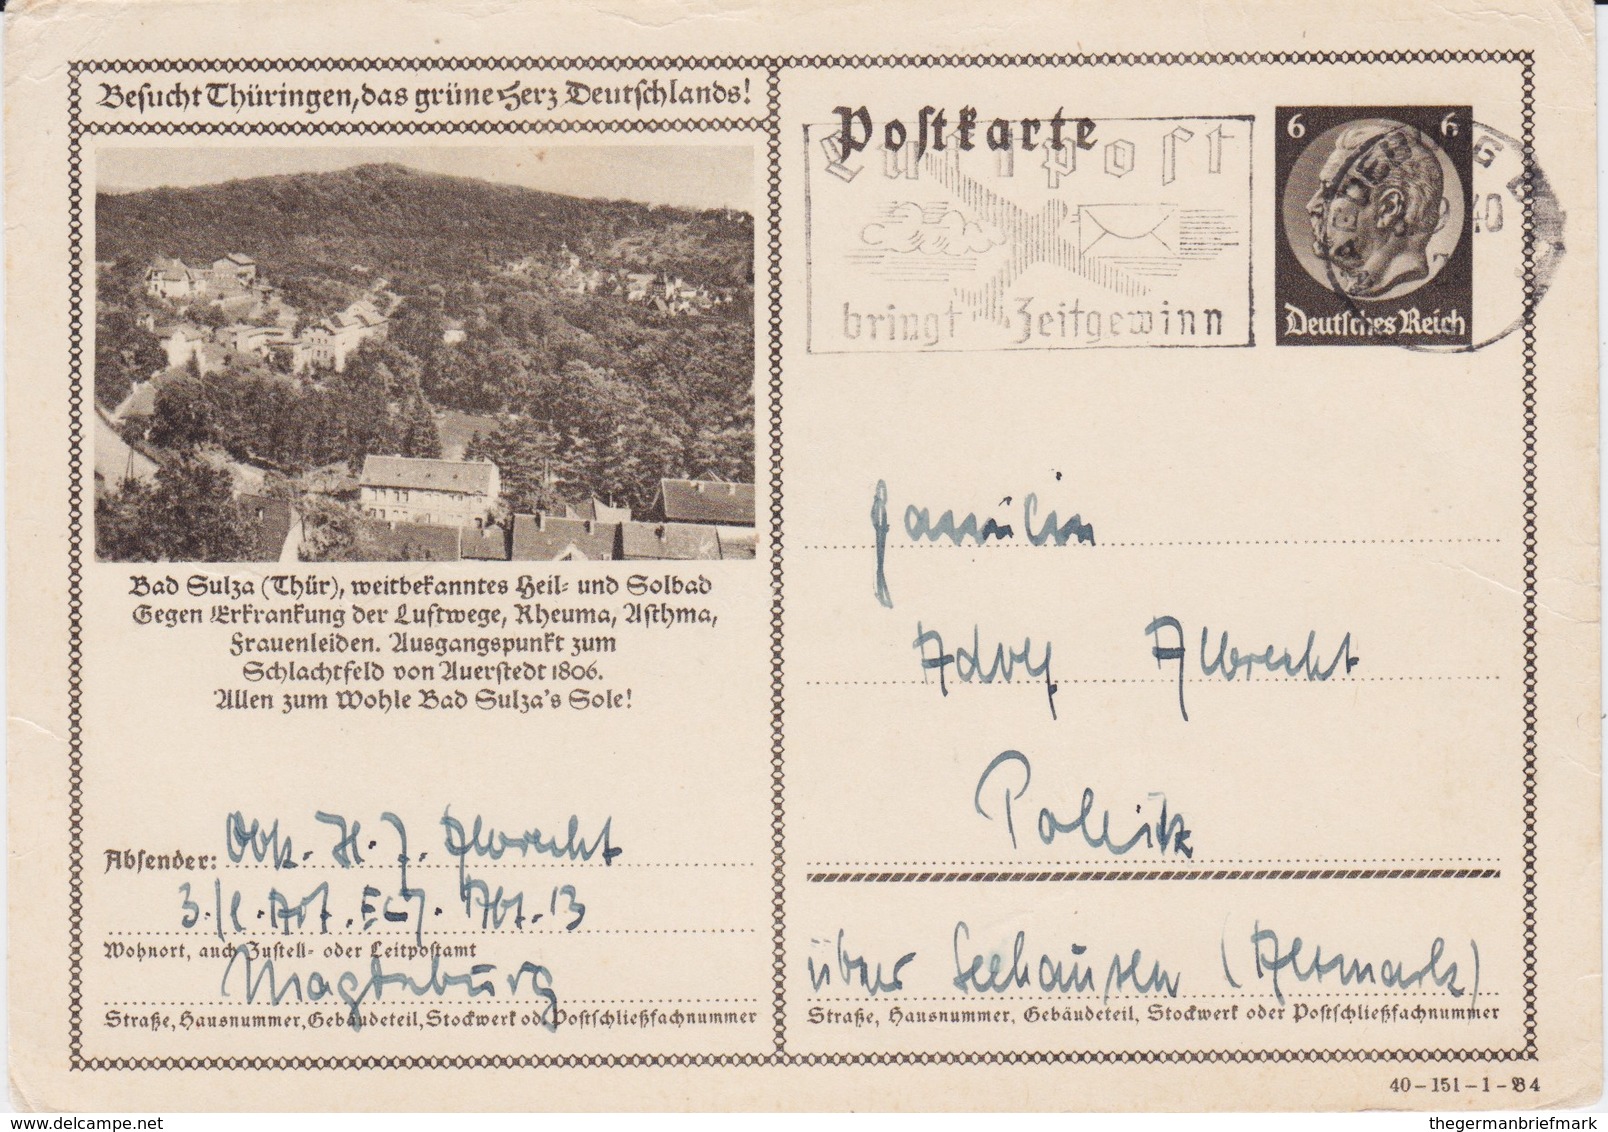 Besucht Thüringen, das grüne Herz Deutschlands!
Bad Sulza (Thür), weitbekanntes Heil- und Solbad
Gegen Erkrankung der Luftwege, Rheuma, Asthma,
Frauenleiden. Ausgangspunkt zum
Schlachtfeld von Auerstedt 1806.
Allen zum Wohle Bad Sulza's Sole!
Absender: H. J. Albrecht
Abt. 13
Wohnort, auch Zustell- oder Leitpostamt
Magdeburg
Straße, Hausnummer, Gebäudeteil, Stockwerk od. Postschließfachnummer
Postkarte
Luftpost
bringt Zeitgewinn
6 6
Deutsches Reich
MAGDEBURG
40
Familie
Adolf Albrecht
Pollitz
über Seehausen (Altmark)
Straße, Hausnummer, Gebäudeteil, Stockwerk oder Postschließfachnummer
40-151-1-B4
www.delcampe.net
thegermanbriefmark